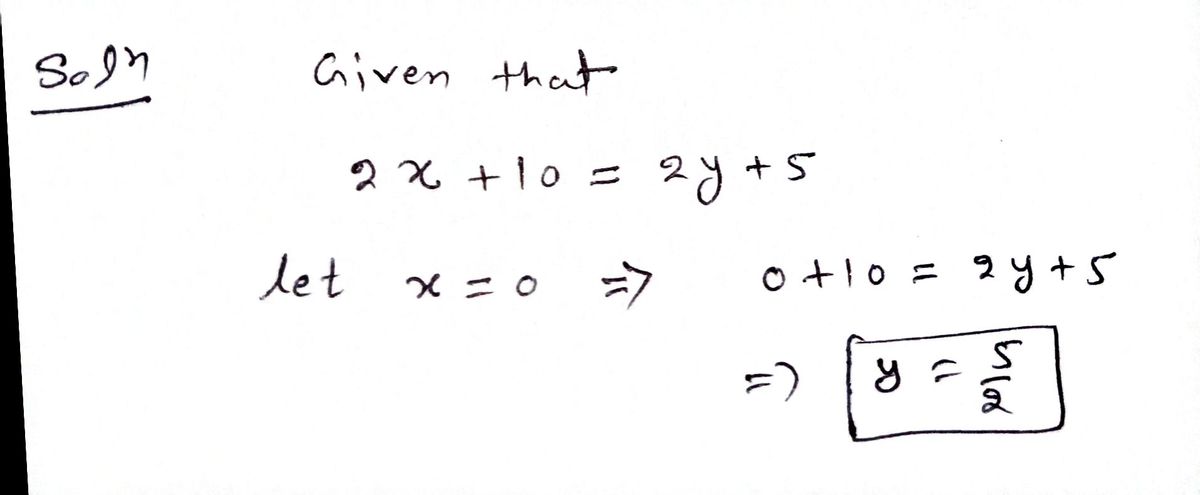 Soln Given that
2x + 10 = 2y + 5
let x = 0 => 0 + 10 = 2y + 5
=> y = 5/2